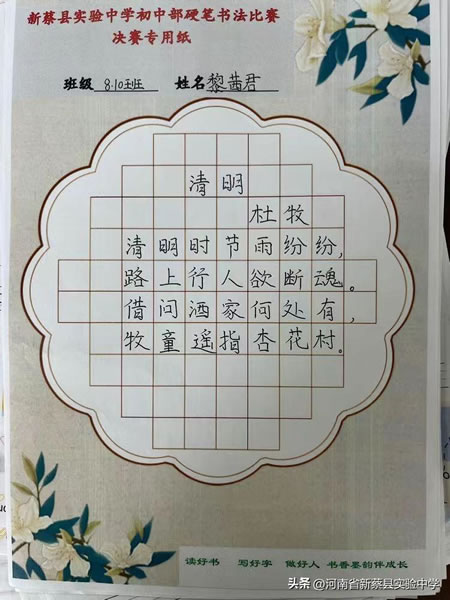 新蔡县实验中学初中部硬笔书法比赛
决赛专用纸
班级 8.10班 姓名 黎茜君
清明
杜牧
清明时节雨纷纷，
路上行人欲断魂。
借问酒家何处有，
牧童遥指杏花村。
读好书 写好字 做好人 书香墨韵伴成长
头条 @河南省新蔡县实验中学